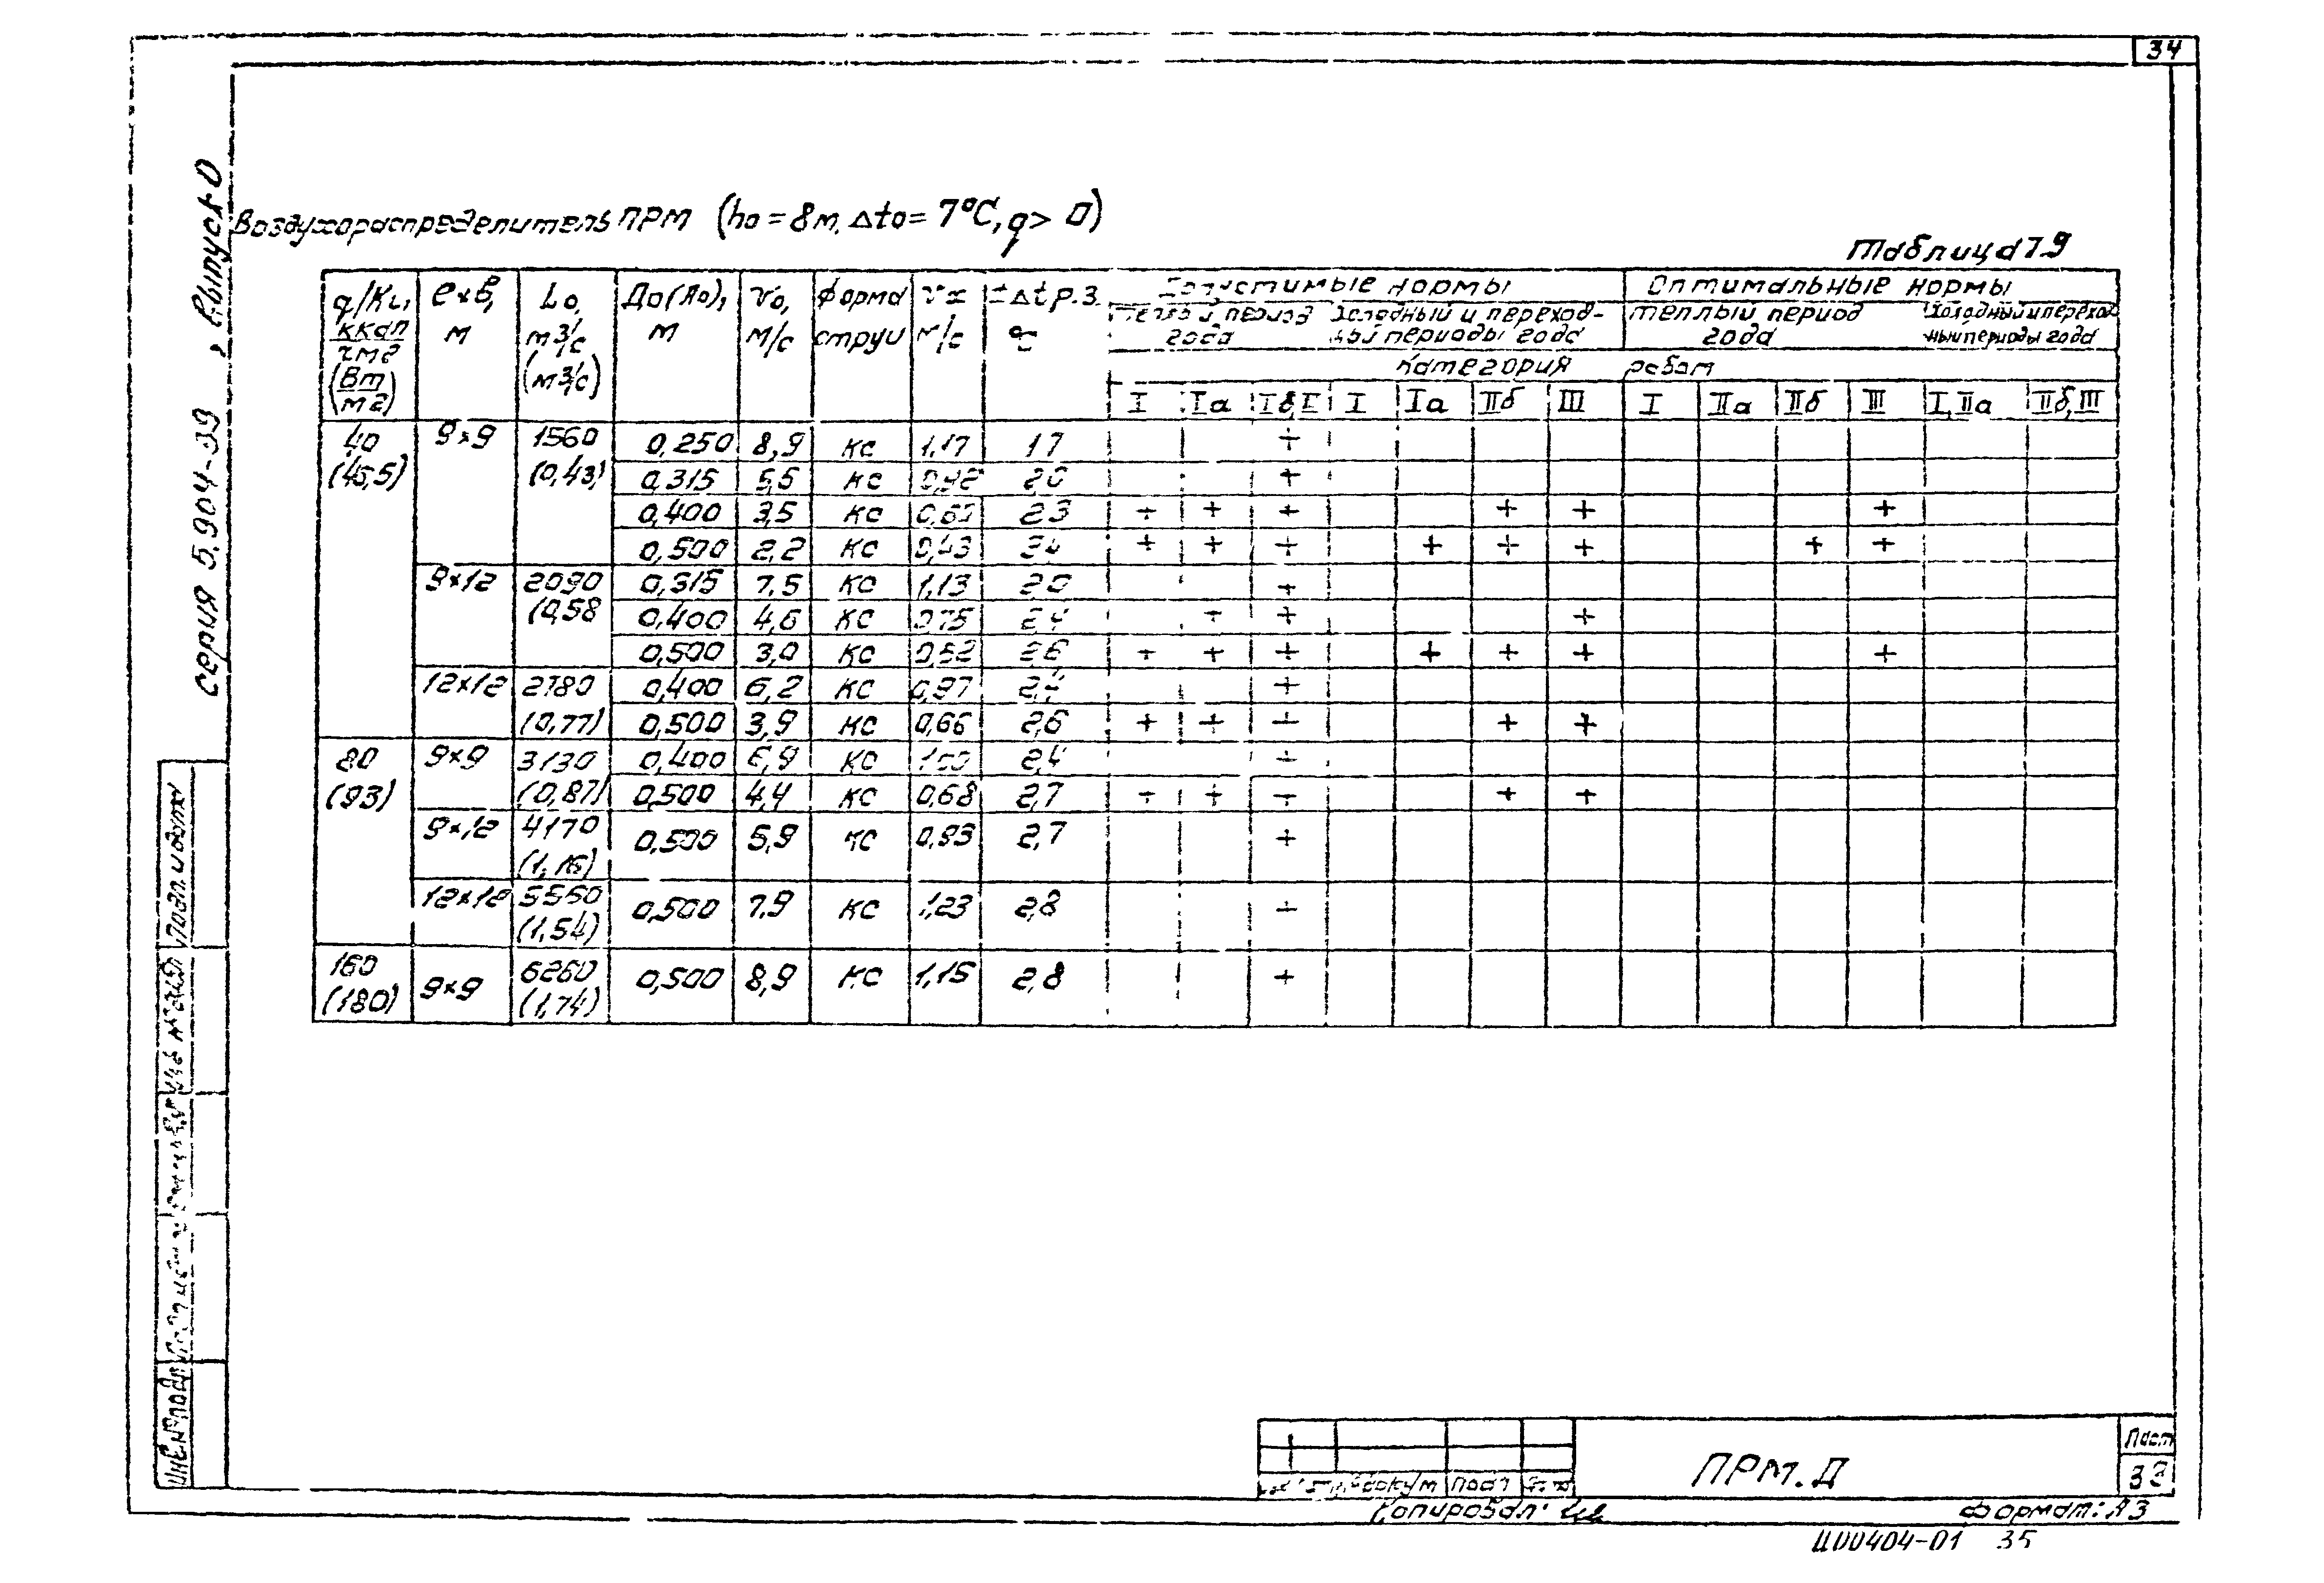 34
Воздухораспределитель ПРМ (h₀ = 8м, Δt₀ = 7°С, q > 0)
Таблица 7.9
q/K_L, ккал/чм2 (Вт/м2) | ℓ×в, м | L₀, м³/с (м³/с) | До(А₀), м | v₀, м/с | Форма струи | vx м/с | ±Δt р.з. °С | Допустимые нормы | Оптимальные нормы
Теплый период года | Холодный и переходный периоды года | Теплый период года | Холодный и переходный периоды года
Категория работ
I | Iа | Iб,II | I | Iа | IIб | III | I | IIа | IIб | III | I,IIа | IIб,III
40 (46,5) | 9×9 | 1560 (0,43) | 0,250 | 8,9 | КС | 1,17 | 17 | | | +
0,315 | 5,5 | КС | 0,92 | 20 | | | +
0,400 | 3,5 | КС | | 23 | + | + | + | | | + | + | | | | +
0,500 | 2,2 | КС | 0,43 | | + | + | + | | + | + | + | | | + | +
9×12 | 2090 (0,58 | 0,315 | 7,5 | КС | 1,13 | 20 | | | +
0,400 | 4,6 | КС | 0,75 | 24 | | + | + | | | | +
0,500 | 3,0 | КС | 0,52 | 26 | + | + | + | | + | + | + | | | | +
12×12 | 2780 (0,77) | 0,400 | 6,2 | КС | 0,97 | 2,4 | | | +
0,500 | 3,9 | КС | 0,66 | 2,6 | + | + | + | | | + | +
80 (93) | 9×9 | 3130 (0,87) | 0,400 | 6,9 | КС | | 2,4 | | | +
0,500 | 4,4 | КС | 0,68 | 2,7 | + | + | + | | | + | +
9×12 | 4170 (1,16) | 0,500 | 5,9 | КС | 0,93 | 2,7 | | | +
12×12 | 5560 (1,54) | 0,500 | 7,9 | КС | 1,23 | 2,8 | | | +
160 (180) | 9×9 | 6260 (1,74) | 0,500 | 8,9 | КС | 1,15 | 2,8 | | | +
серия 5.904-39 , Выпуск 0
Подп. и дата
Инв.№подл
№докум Подп
ПРМ.Д
Лист
33
Копировал:
Формат: А3
ЦО0404-01 35